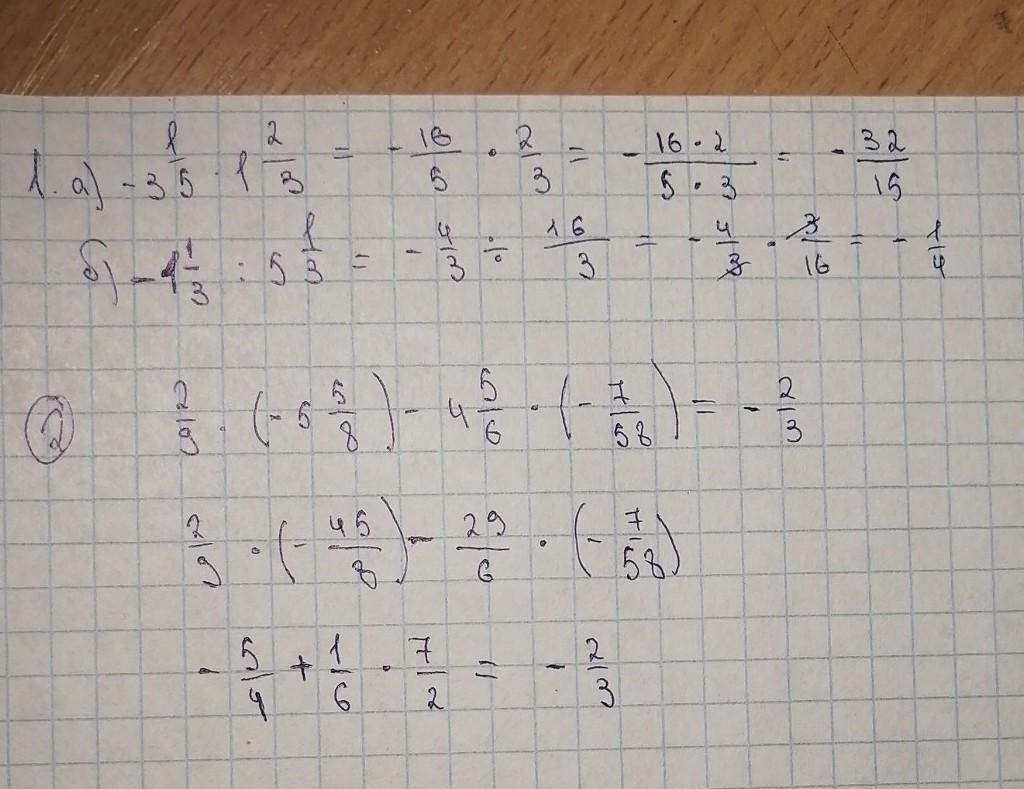 1. а) -3 1/5 · 1 2/3 = - 16/5 · 2/3 = - 16·2/5·3 = - 32/15
б) -1 1/3 : 5 1/3 = - 4/3 ÷ 16/3 = - 4/3 · 3/16 = - 1/4
2 2/9 · (-5 5/8) - 4 5/6 · (- 7/58) = - 2/3
2/9 · (- 45/8) - 29/6 · (- 7/58)
- 5/4 + 1/6 · 7/2 = - 2/3